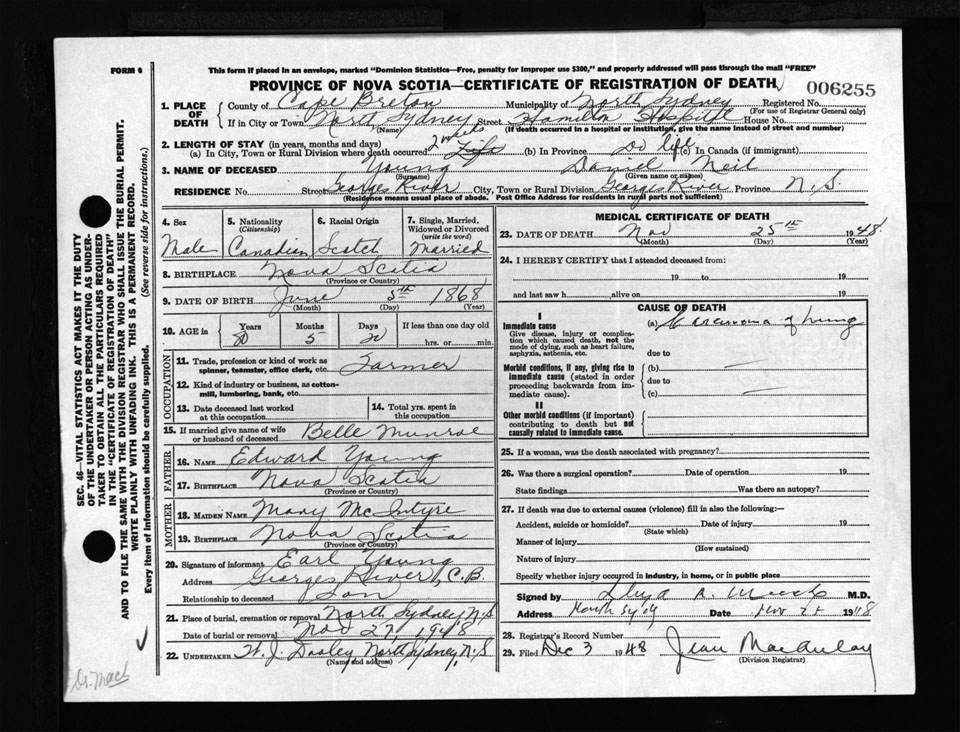 FORM 6
This form if placed in an envelope, marked "Dominion Statistics—Free, penalty for improper use $300," and properly addressed will pass through the mail "FREE"
PROVINCE OF NOVA SCOTIA—CERTIFICATE OF REGISTRATION OF DEATH
006255
1. PLACE OF DEATH County of Cape Breton Municipality of North Sydney Registered No.
(For use of Registrar General only)
If in City or Town North Sydney Street Hamilton Hospital House No.
(Name) (If death occurred in a hospital or institution, give the name instead of street and number)
2. LENGTH OF STAY (in years, months and days)
(a) In City, Town or Rural Division where death occurred 2 weeks Life (b) In Province Do life (c) In Canada (if immigrant)
3. NAME OF DECEASED Young Daniel Neil
(Surname) (Given name or names)
RESIDENCE No. Street Georges River City, Town or Rural Division Georges River Province N.S.
(Residence means usual place of abode. Post Office Address for residents in rural parts not sufficient)
4. Sex Male
5. Nationality (Citizenship) Canadian
6. Racial Origin Scotch
7. Single, Married, Widowed or Divorced (write the word) Married
8. BIRTHPLACE Nova Scotia
(Province or Country)
9. DATE OF BIRTH June 5th 1868
(Month) (Day) (Year)
10. AGE in Years 80 Months 5 Days 20 If less than one day old
hrs. or min.
OCCUPATION
11. Trade, profession or kind of work as spinner, teamster, office clerk, etc. Farmer
12. Kind of industry or business, as cotton-mill, lumbering, bank, etc.
13. Date deceased last worked at this occupation
14. Total yrs. spent in this occupation
15. If married give name of wife or husband of deceased Belle Munroe
FATHER
16. NAME Edward Young
17. BIRTHPLACE Nova Scotia
(Province or Country)
MOTHER
18. MAIDEN NAME Mary McIntyre
19. BIRTHPLACE Nova Scotia
(Province or Country)
20. Signature of informant Earl Young
Address Georges River, C.B.
Relationship to deceased Son
21. Place of burial, cremation or removal North Sydney N.S
Date of burial or removal Nov 27 1948
22. UNDERTAKER W. J. Dooley North Sydney, N.S
(Name and address)
MEDICAL CERTIFICATE OF DEATH
23. DATE OF DEATH Nov 25th 1948
(Month) (Day) (Year)
24. I HEREBY CERTIFY that I attended deceased from:
19 to 19
and last saw h alive on 19
CAUSE OF DEATH
I
Immediate cause
Give disease, injury or complication which caused death, not the mode of dying, such as heart failure, asphyxia, asthenia, etc.
(a) Carcinoma of Lung
due to
Morbid conditions, if any, giving rise to immediate cause (stated in order proceeding backwards from immediate cause).
(b)
due to
(c)
II
Other morbid conditions (if important) contributing to death but not causally related to immediate cause.
25. If a woman, was the death associated with pregnancy?
26. Was there a surgical operation? Date of operation 19
State findings Was there an autopsy?
27. If death was due to external causes (violence) fill in also the following:—
Accident, suicide or homicide? Date of injury 19
(State which)
Manner of injury
(How sustained)
Nature of injury
Specify whether injury occurred in industry, in home, or in public place
Signed by M.D.
Address North Syd'y Date Nov 1948
28. Registrar's Record Number
29. Filed Dec 3 1948 Jean MacAulay
(Division Registrar)
SEC. 46—VITAL STATISTICS ACT MAKES IT THE DUTY
OF THE UNDERTAKER OR PERSON ACTING AS UNDER-
TAKER TO OBTAIN ALL THE PARTICULARS REQUIRED
IN THE "CERTIFICATE OF REGISTRATION OF DEATH"
AND TO FILE THE SAME WITH THE DIVISION REGISTRAR WHO SHALL ISSUE THE BURIAL PERMIT.
WRITE PLAINLY WITH UNFADING INK. THIS IS A PERMANENT RECORD.
Every item of information should be carefully supplied. (See reverse side for instructions.)
Dr. Mack